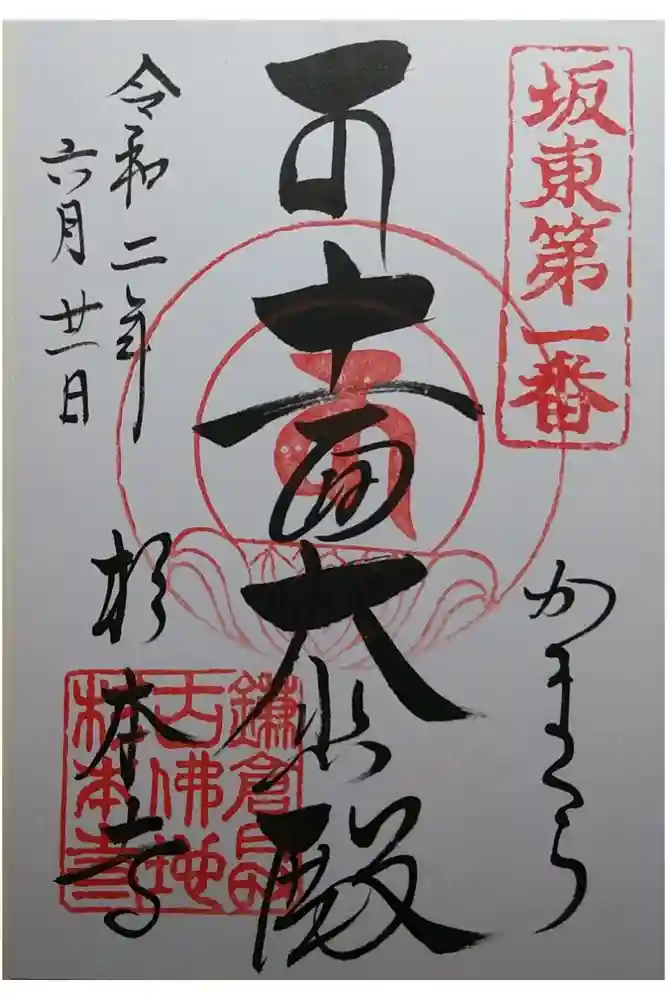 坂東第一番
かまくら
十一面大悲殿
令和二年
六月廿一日
杉本寺
鎌倉最
古佛地
杉本寺